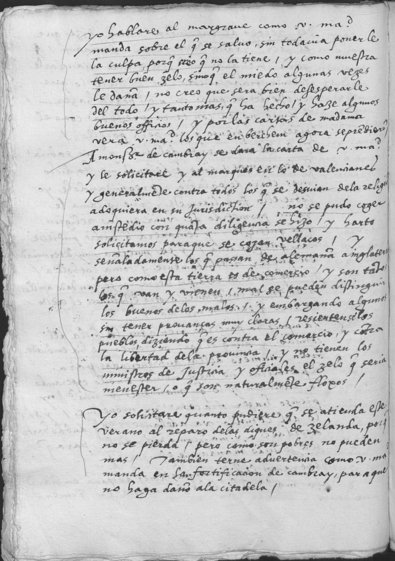 yo hablare al margrave como v. ma.d
manda sobre el q̃ se salvo, sin todavia ponerle
la culpa porq̃ creo q̃ no la tiene / y como muestra
tener buen zelo, sinoq̃ el miedo algunas vezes
le daña / no creo que sera bien desesperarle
del todo / y tanto mas, q̃ ha hecho / y haze algunos
buenos officios / y por las cartas de madama
vera v. ma.d los que en berchem agora se prendieron
A monsr de cambray se dara la carta de v. ma.d
y le solicitare y al marques en lo de valencianes
y generalmẽte contra todos los q̃ se desvian dela religiõ
adequiera en su jurisdiction / no se pudo coger
amstedio con quãta diligencia se hizo / y harto
solicitamos paraque se cojan vellacos / y
señaladamente los q̃ passan de alemaña a inglaterra
pero como esta tierra es de comercio / y son tãtos
los q̃ van y vienen / mal se pueden distinguir
los buenos de los malos / y embargando algunos
sin tener provanças muy claras / resientense los
pueblos, diziendo q̃ es contra el comercio, y cõtra
la libertad dela provincia / y no tienen los
ministros de justicia y officiales el zelo q̃ seria
menester / o q̃ son naturalmẽte floxos /
yo solicitare quanto pudiere q̃ se atienda este
verano al reparo delas diques de zelanda, porq̃
no se pierda / pero como son pobres no pueden
mas / Tambien terne advertencia como v. ma.d
manda en la fortificacion de cambray, paraque
no haga daño ala citadela /